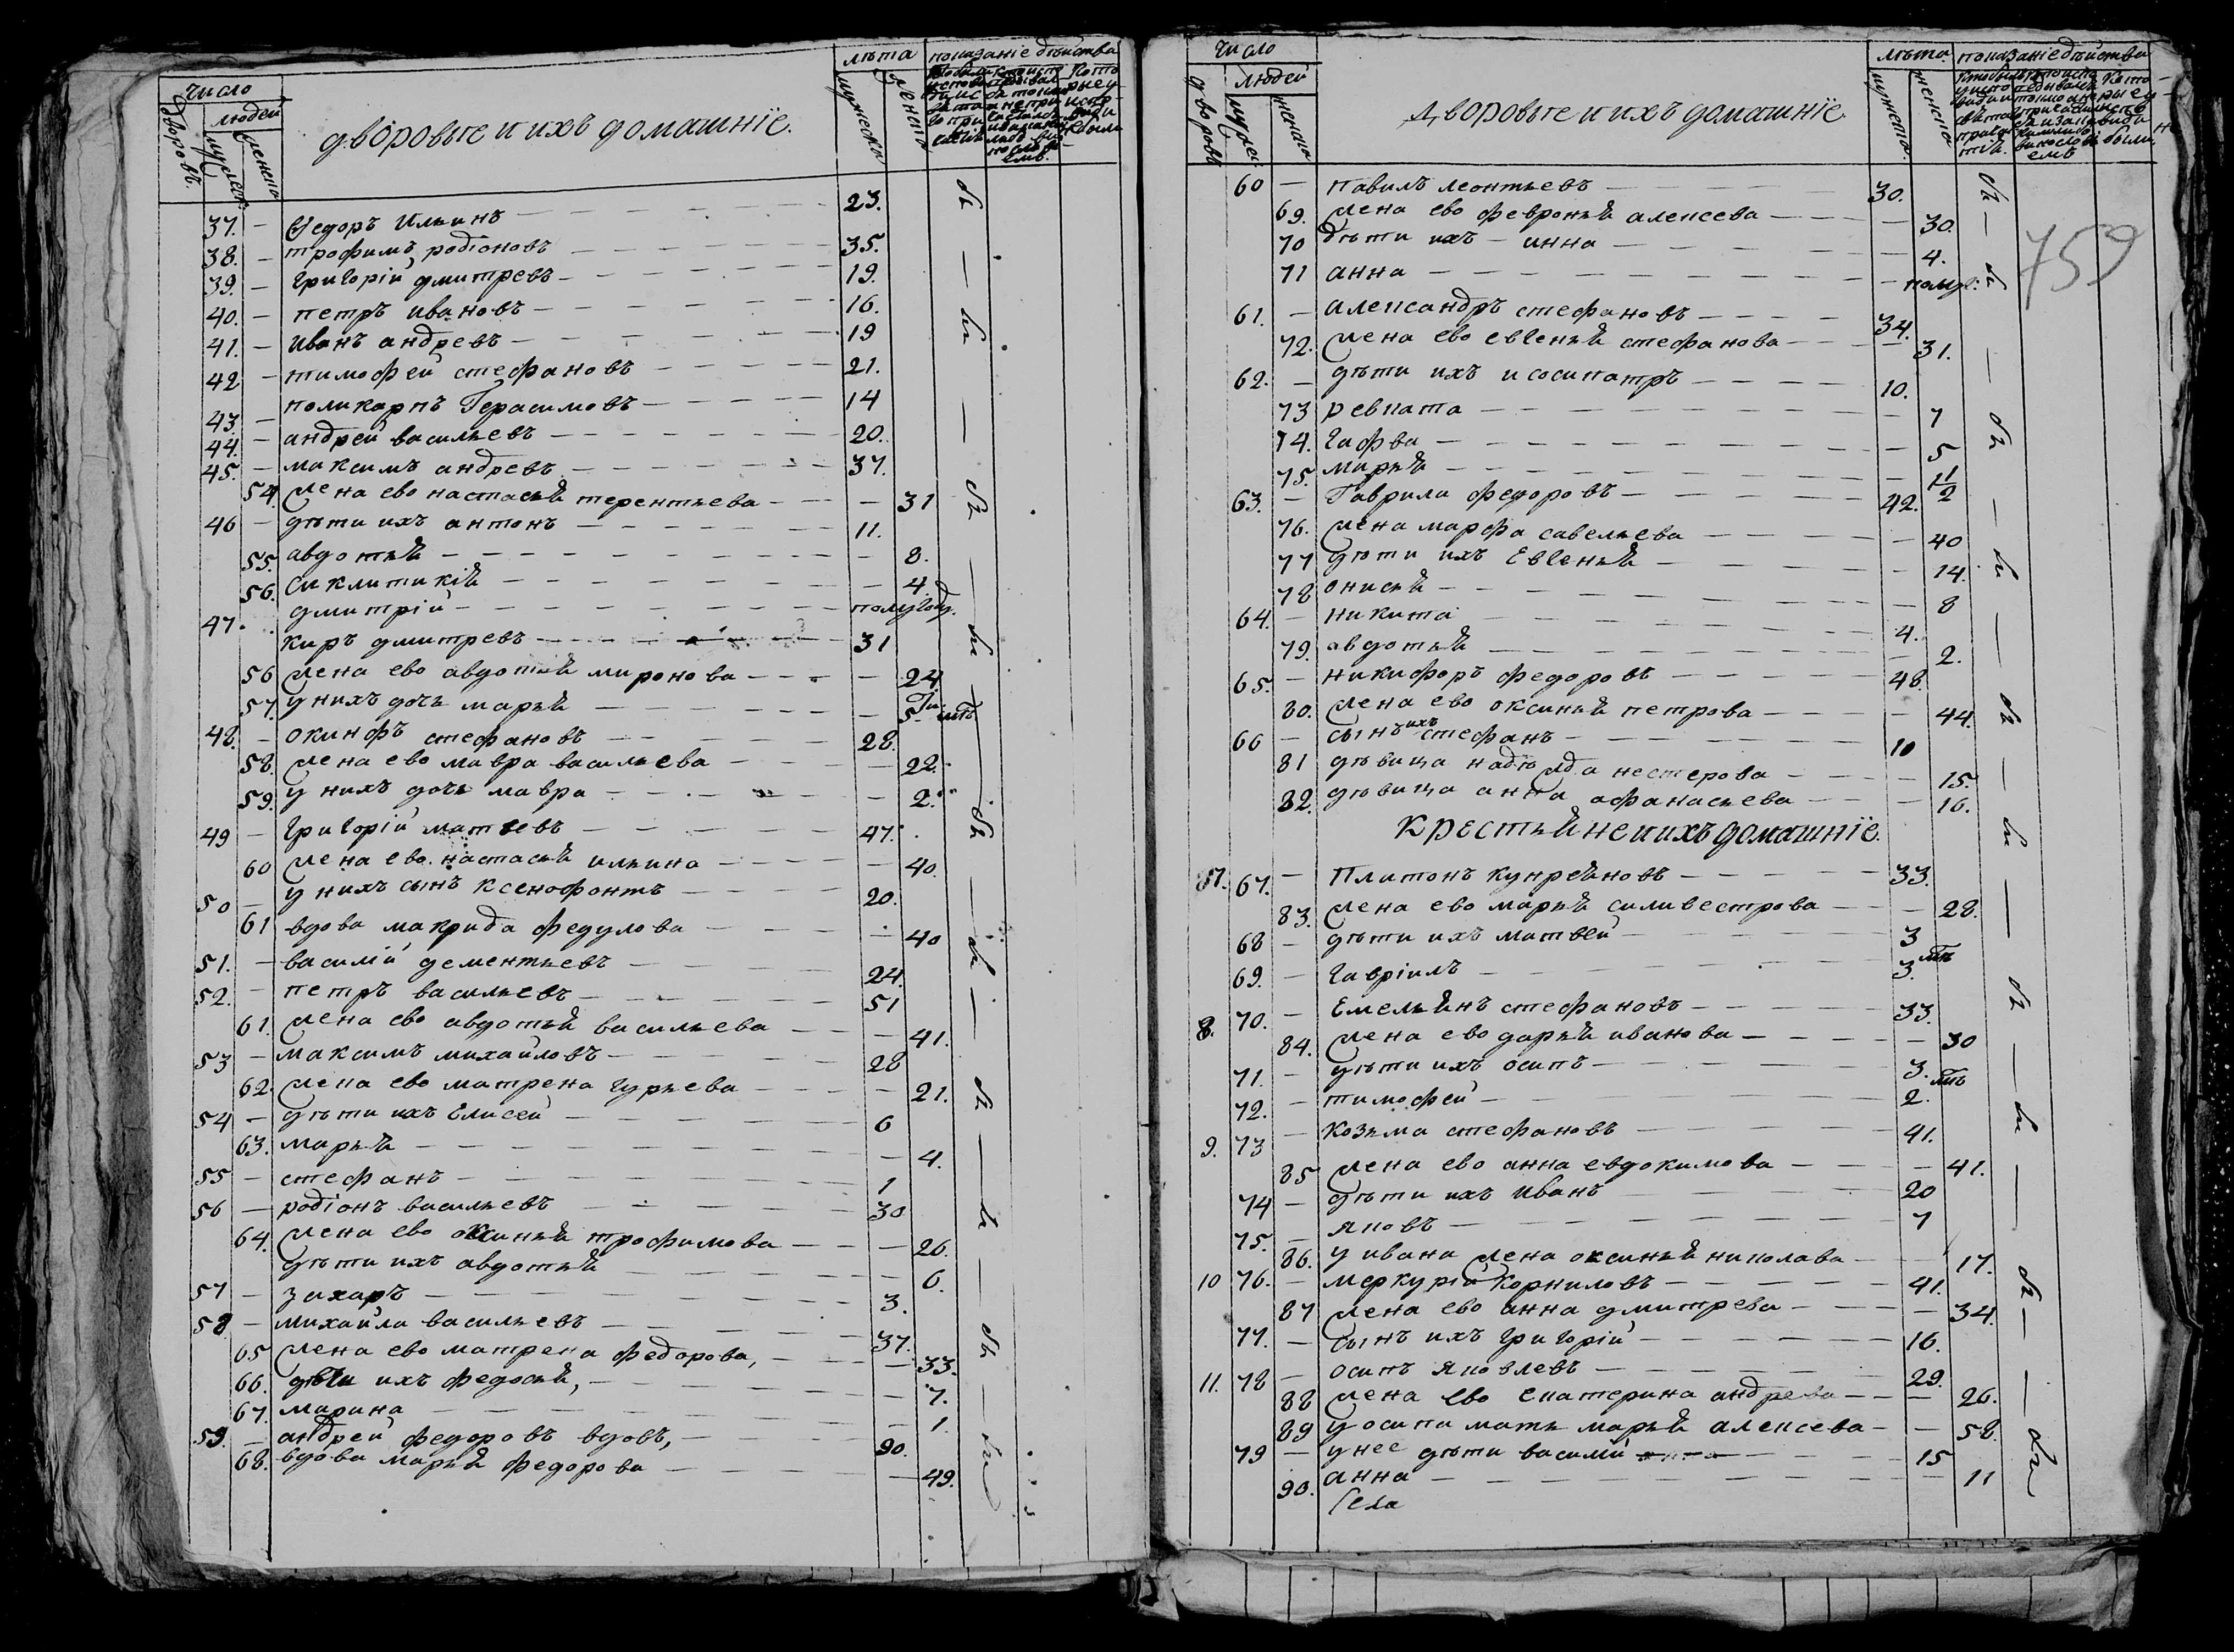 число
лѣта показаніе дѣйства
дворовъ
людей
мужеска
женска
дворовые и ихъ домашніе.
37. — Ѳедоръ Ильинъ — 23.
38. — трофимъ родіоновъ — 35.
39. — григорій дмитревъ — 19.
40. — петръ ивановъ — 16.
41. — иванъ андревъ — 19
42 — тимофей стефановъ — 21.
43. — поликарпъ Герасимовъ — 14
44. — андрей васильевъ — 20.
45. — максимъ андревъ — 37.
54. жена ево настасья терентьева — 31
46 — дѣти ихъ антонъ — 11.
55. авдотья — 8.
56. сиклитикія — 4
47. дмитрій — полугоду.
киръ дмитревъ — 31
56 жена ево авдотья миронова — 24
57. у нихъ дочь марья — 5
48. — окинфъ стефановъ — 28.
58. жена ево мавра васильева — 22.
59. у нихъ дочь мавра — 2.
49 — григорій матвевъ — 47.
60 жена ево настасья ильина — 40.
50 — у нихъ сынъ ксенофонтъ — 20.
61 вдова макрида федулова — 40
51. — василій дементьевъ — 24.
52. — петръ васильевъ — 51
61. жена ево авдотья васильева — 41.
53 — максимъ михайловъ — 28
62. жена ево матрена гурьева — 21.
54 — дѣти ихъ Елисей — 6
63. марья — 4.
55 — стефанъ — 1
56 — родіонъ васильевъ — 30
64. жена ево оксинья трофимова — 26.
дѣти ихъ авдотья — 6.
57 — захаръ — 3.
58 — михайла васильевъ — 37.
65 жена ево матрена федорова, — 33.
66. дѣти ихъ федосья, — 7.
67. марина — 1.
59. — андрей федоровъ вдовъ, — 90.
68. вдова марья федорова — 49.
число
лѣта показаніе дѣйства
дворовъ
людей
мужеска.
женска
дворовые и ихъ домашніе
759
60 — павилъ леонтьевъ — 30.
69. жена ево февронья алексева — 30.
70 дѣти ихъ — инна — 4.
71 анна — полуг:
61. — александръ стефановъ — 34.
72. жена ево евгенья стефанова — 31.
62. — дѣти ихъ исосипатръ — 10.
73 ревпата — 7
74. гафва — 5
75. марья — 1/2
63. — Гаврила федоровъ — 42.
76. жена марфа савельева — 40
77 дѣти ихъ Евгенья — 14.
78 онисья — 8
64. — никита — 4.
79. авдотья — 2.
65. — никифоръ федоровъ — 48.
80. жена ево оксинья петрова — 44.
66 — сынъ ихъ стефанъ — 10
81 дѣвица надѣжда нестерова — 15.
82. дѣвица анна афанасьева — 16.
Крестьяне и ихъ домашніе.
67. — Платонъ купреяновъ — 33.
83. жена ево марья силивестрова — 28.
68 — дѣти ихъ матвей — 3
69. — гавріилъ — 3.
8. 70. — Емельянъ стефановъ — 33.
84. жена ево дарья иванова — 30
71. — дѣти ихъ осипъ — 3.
72. — тимофей — 2.
9. 73 — козьма стефановъ — 41.
85 жена ево анна евдокимова — 41.
74 — дѣти ихъ иванъ — 20
75. — яковъ — 7
86. у ивана жена оксинья николава — 17.
10 76. — меркурій корниловъ — 41.
87 жена ево анна дмитрева — 34.
77. — сынъ ихъ григорій — 16.
11. 78 — осипъ яковлевъ — 29.
88 жена ево екатерина андрева — 26.
89 у осипа мать марья алексева — 58.
79 — у нее дѣти василій — 15
90. анна — 11
села